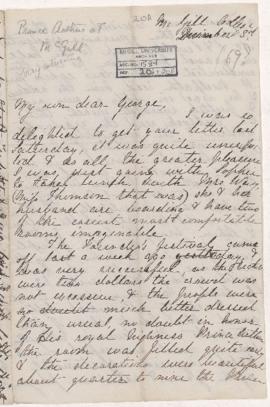 Prince Arthur at
McGill
McGill College
December 3rd
McGILL UNIVERSITY
ARCHIVES
ACC. NO. 1584
REF.
My own dear George,
I was so
delighted to get your letter last
Saturday, it was quite unexpec
ted & so all the greater pleasure
I was just going with Sophy
to take lunch with Mrs
(Miss Thomson that was) she & her
husband are boarding & have two
of the cosiest most comfortable
rooms imaginable
The festival came
off last a week ago yesterday &
was very successful, as the tickets
were two dollars the crowd was
not immense, & the people were
no doubt much better dressed
than usual, no doubt in honor
of His royal Highness Prince Arthur
The room was filled quite
& the decorations were beautiful
about quarter to nine the Prince